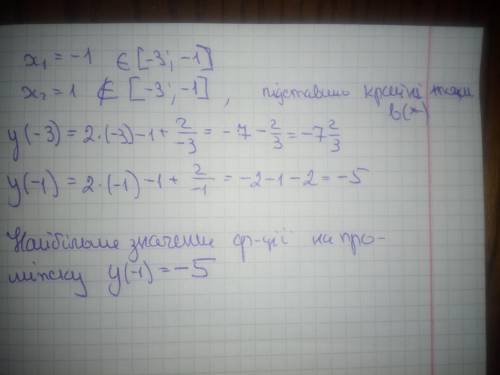 x₁ = -1 ∈ [-3; -1]
x₂ = 1 ∉ [-3; -1], підставимо крайні точки
в(*)
y(-3) = 2·(-3)-1+2/-3 = -7-2/3 = -7 2/3
y(-1) = 2·(-1)-1+2/-1 = -2-1-2 = -5
Найбільше значення ф-ції на про-
міжку y(-1) = -5